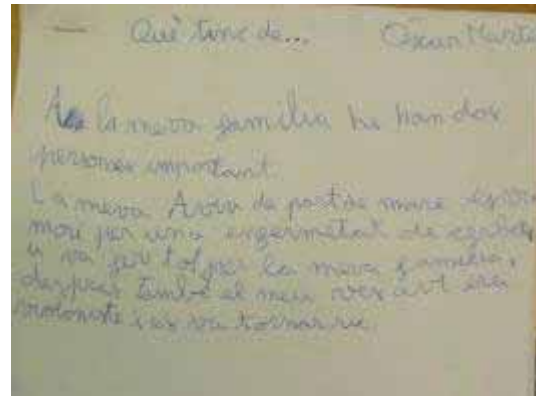 Què tinc de... Òscar Martí
A la meva família hi han dos
persones important.
La meva Avia de part de mare es va
morí per una enfermetat de
i va fer tot per la meva família,
despres també el meu
violoniste i es va tornar ric.